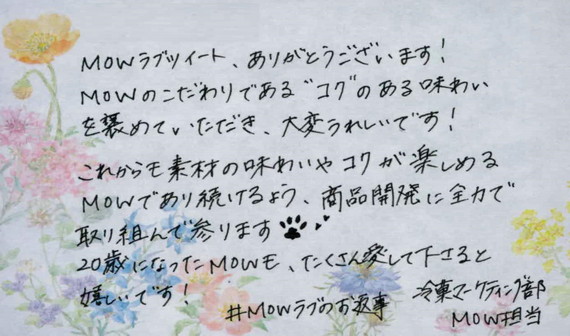 MOWラブツイート、ありがとうございます！
MOWのこだわりである"コク"のある味わい
を褒めていただき、大変うれしいです！
これからも素材の味わいやコクが楽しめる
MOWであり続けるよう、商品開発に全力で
取り組んで参ります
20歳になったMOWも、たくさん愛して下さると
嬉しいです！
#MOWラブのお返事
冷菓マーケティング部
MOW担当